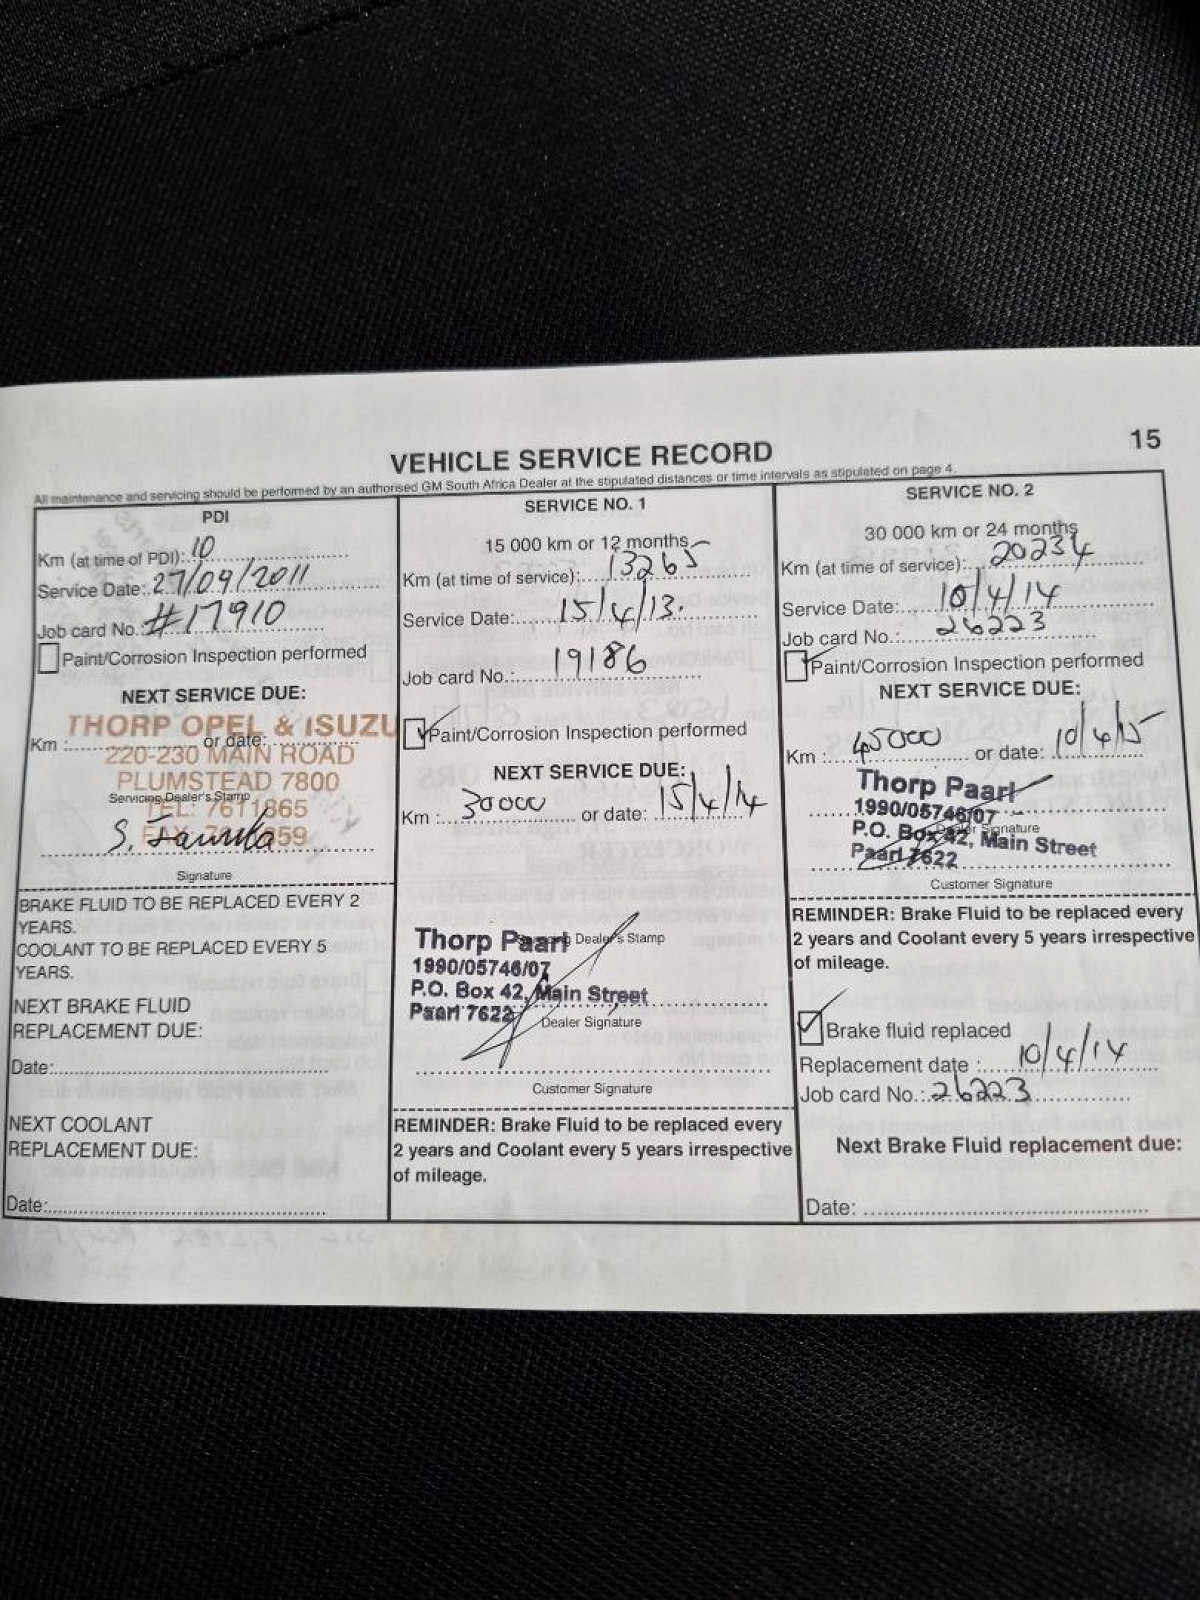 15
VEHICLE SERVICE RECORD
All maintenance and servicing should be performed by an authorised GM South Africa Dealer at the stipulated distances or time intervals as stipulated on page 4.
PDI
Km (at time of PDI): 10
Service Date: 27/09/2011
Job card No. #17910
Paint/Corrosion Inspection performed
NEXT SERVICE DUE:
THORP OPEL & ISUZU
Km : or date:
220-230 MAIN ROAD
PLUMSTEAD 7800
Servicing Dealer's Stamp
TEL: 7611865
FAX:
S.
Signature
BRAKE FLUID TO BE REPLACED EVERY 2
YEARS.
COOLANT TO BE REPLACED EVERY 5
YEARS.
NEXT BRAKE FLUID
REPLACEMENT DUE:
Date:
NEXT COOLANT
REPLACEMENT DUE:
Date:
SERVICE NO. 1
15 000 km or 12 months
Km (at time of service): 13265
Service Date: 15/4/13.
Job card No.: 19186
Paint/Corrosion Inspection performed
NEXT SERVICE DUE:
Km : 30000 or date: 15/4/14
Servicing Dealer's Stamp
Thorp Paarl
1990/05746/07
P.O. Box 42, Main Street
Paarl 7622
Dealer Signature
Customer Signature
REMINDER: Brake Fluid to be replaced every
2 years and Coolant every 5 years irrespective
of mileage.
SERVICE NO. 2
30 000 km or 24 months
Km (at time of service): 20234
Service Date: 10/4/14
Job card No.: 26223
Paint/Corrosion Inspection performed
NEXT SERVICE DUE:
Km : 45000 or date: 10/4/15
Thorp Paarl
1990/05746/07
Dealer Signature
P.O. Box 42, Main Street
Paarl 7622
Customer Signature
REMINDER: Brake Fluid to be replaced every
2 years and Coolant every 5 years irrespective
of mileage.
Brake fluid replaced
Replacement date : 10/4/14
Job card No.: 26223
Next Brake Fluid replacement due:
Date: